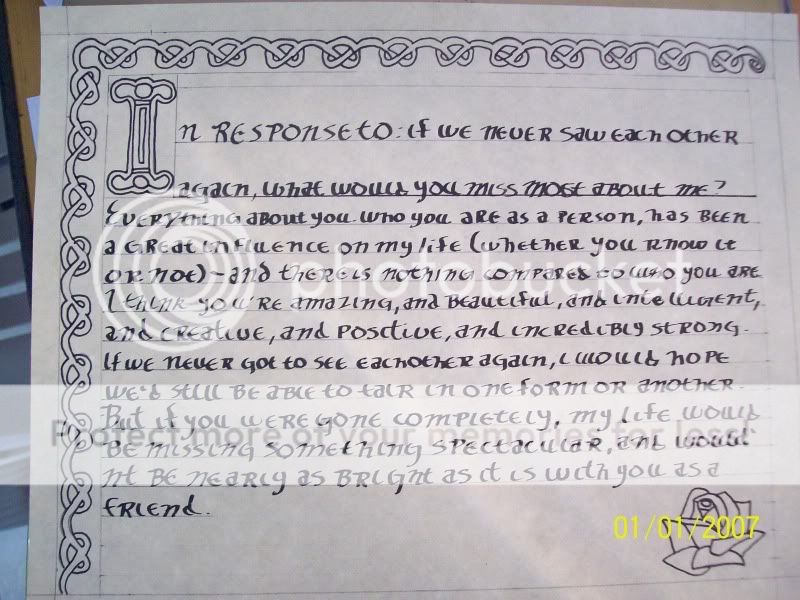 In RESPONSE to: if we never saw each other
again, what would you miss most about me?
Everything about you. Who you are as a person, has been
a great influence on my life (whether you know it
or not) - and there is nothing compared to who you are
I think you're amazing, and beautiful, and intelligent,
and creative, and positive, and incredibly strong.
If we never got to see eachother again, i would hope
we'd still be able to talk in one form or another.
But if you were gone completely, my life would
be missing something spectacular, and would
nt be nearly as bright as it is with you as a
friend.
01/01/2007
photobucket
Protect more of your memories for less!